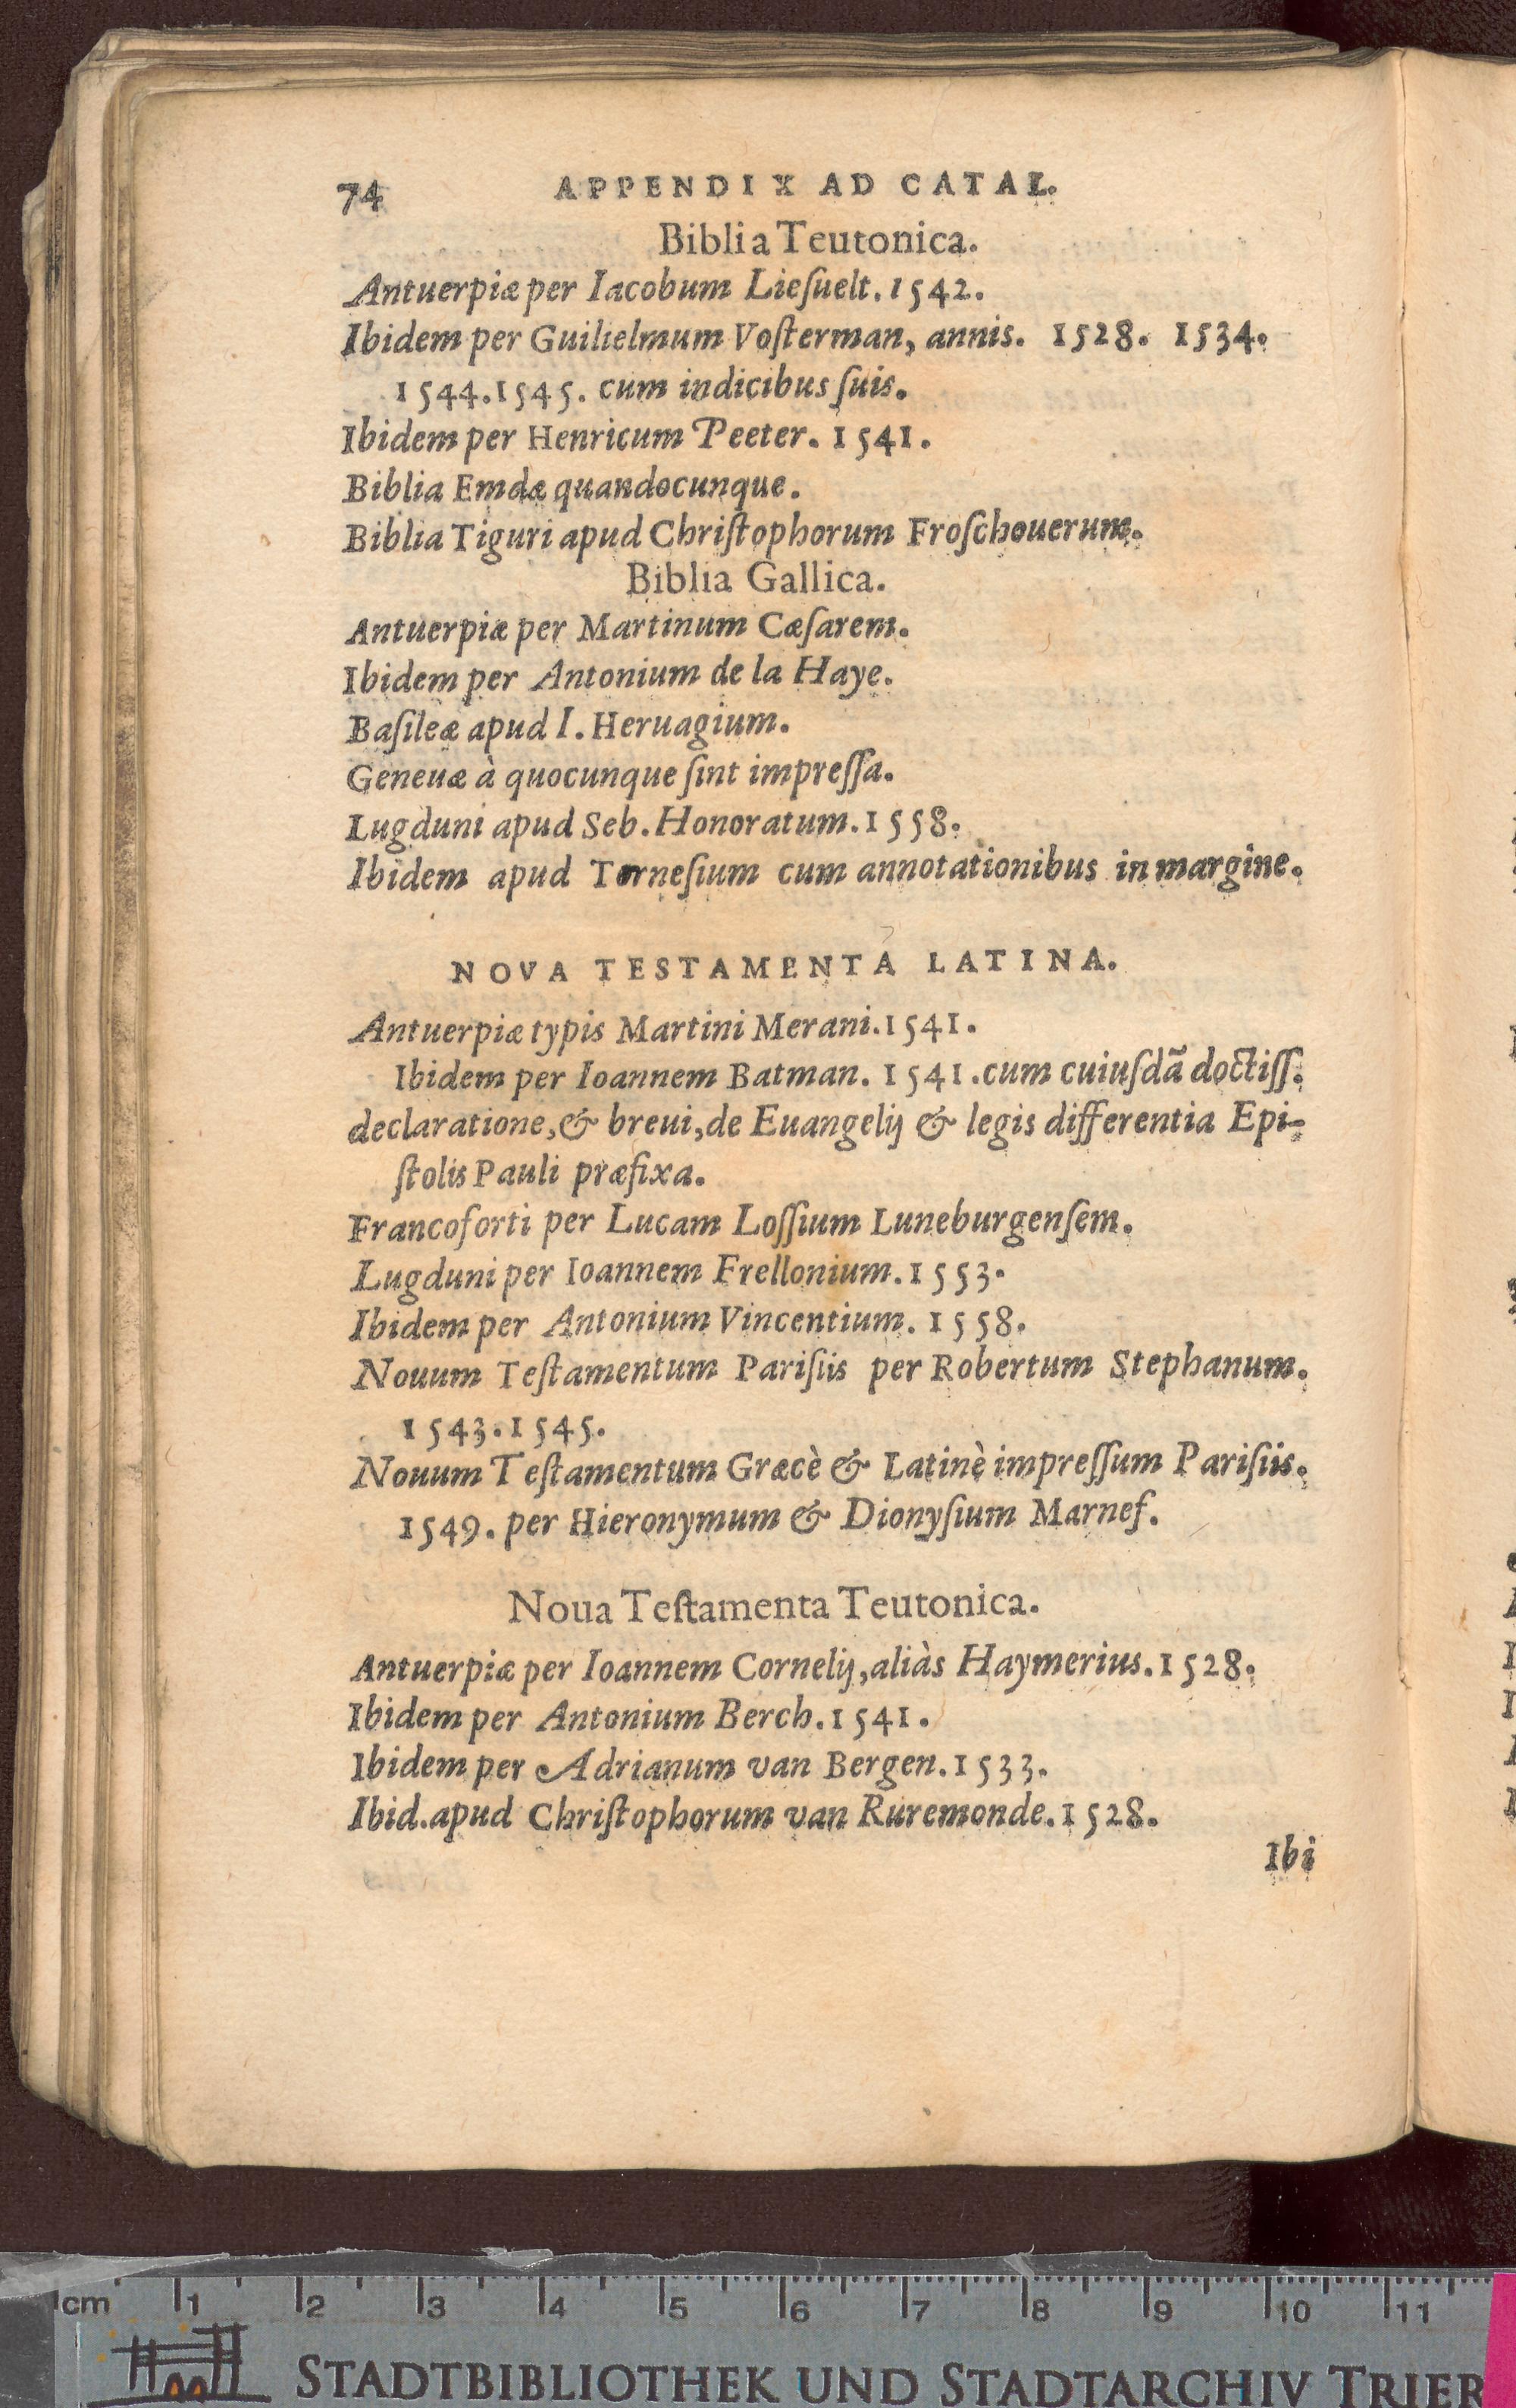 74 APPENDIX AD CATAL.
Biblia Teutonica.
Antuerpiæ per Iacobum Lieſuelt. 1542.
Ibidem per Guilielmum Voſterman, annis. 1528. 1534.
1544. 1545. cum indicibus ſuis.
Ibidem per Henricum Peeter. 1541.
Biblia Emdæ quandocunque.
Biblia Tiguri apud Chriſtophorum Froſchouerum.
Biblia Gallica.
Antuerpiæ per Martinum Cæſarem.
Ibidem per Antonium de la Haye.
Baſileæ apud I. Heruagium.
Geneuæ à quocunque ſint impreſſa.
Lugduni apud Seb. Honoratum. 1558.
Ibidem apud Torneſium cum annotationibus in margine.
NOVA TESTAMENTA LATINA.
Antuerpiæ typis Martini Merani. 1541.
Ibidem per Ioannem Batman. 1541. cum cuiuſdã doctiſſ.
declaratione, & breui, de Euangelij & legis differentia Epi-
ſtolis Pauli præfixa.
Francoforti per Lucam Loſſium Luneburgenſem.
Lugduni per Ioannem Frellonium. 1553.
Ibidem per Antonium Vincentium. 1558.
Nouum Teſtamentum Pariſiis per Robertum Stephanum.
1543. 1545.
Nouum Teſtamentum Græcè & Latinè impreſſum Pariſiis.
1549. per Hieronymum & Dionyſium Marnef.
Noua Teſtamenta Teutonica.
Antuerpiæ per Ioannem Cornelij, aliàs Haymerius. 1528.
Ibidem per Antonium Berch. 1541.
Ibidem per Adrianum van Bergen. 1533.
Ibid. apud Chriſtophorum van Ruremonde. 1528.
Ibi
cm 1 2 3 4 5 6 7 8 9 10 11
STADTBIBLIOTHEK UND STADTARCHIV TRIER